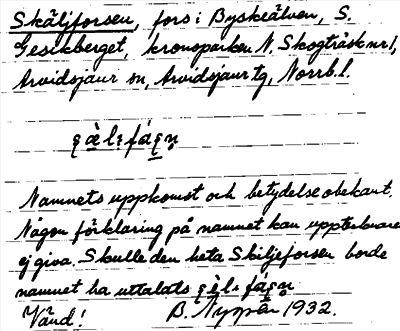 Skäljforsen, fors i Byskeälven, S.
Gesikberget, kronoparken N. Skogträsk nr 1,
Arvidsjaur sn, Arvidsjaur tg, Norrb. l.
Namnets uppkomst och betydelse obekant.
Någon förklaring på namnet kan uppteknare
ej giva. Skulle den heta Skiljeforsen borde
namnet ha uttalats
Vänd! B. Nyman 1932.